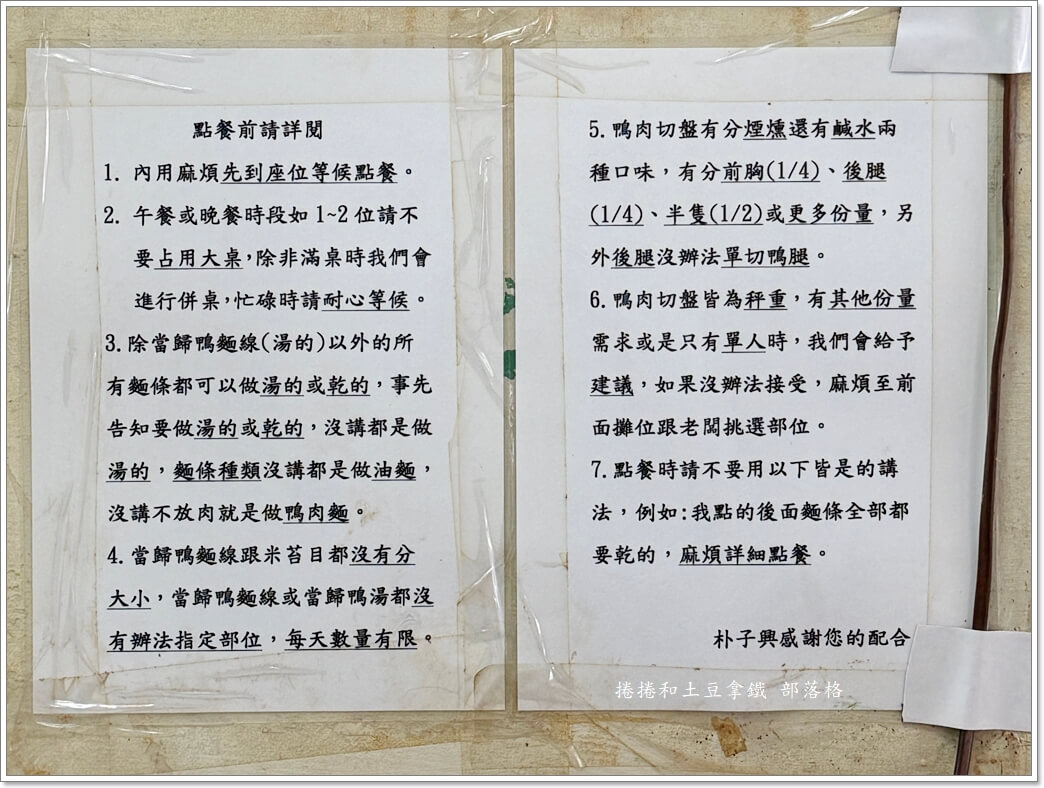 點餐前請詳閱
1. 內用麻煩先到座位等候點餐。
2. 午餐或晚餐時段如1~2位請不
要占用大桌,除非滿桌時我們會
進行併桌,忙碌時請耐心等候。
3.除當歸鴨麵線(湯的)以外的所
有麵條都可以做湯的或乾的，事先
告知要做湯的或乾的，沒講都是做
湯的，麵條種類沒講都是做油麵，
沒講不放肉就是做鴨肉麵。
4.當歸鴨麵線跟米苔目都沒有分
大小，當歸鴨麵線或當歸鴨湯都沒
有辦法指定部位，每天數量有限。
5.鴨肉切盤有分煙燻還有鹹水兩
種口味，有分前胸(1/4)、後腿
(1/4)、半隻(1/2)或更多份量，另
外後腿沒辦法單切鴨腿。
6.鴨肉切盤皆為秤重，有其他份量
需求或是只有單人時，我們會給予
建議，如果沒辦法接受，麻煩至前
面攤位跟老闆挑選部位。
7.點餐時請不要用以下皆是的講
法，例如:我點的後面麵條全部都
要乾的，麻煩詳細點餐。
朴子興感謝您的配合
捲捲和土豆拿鐵 部落格